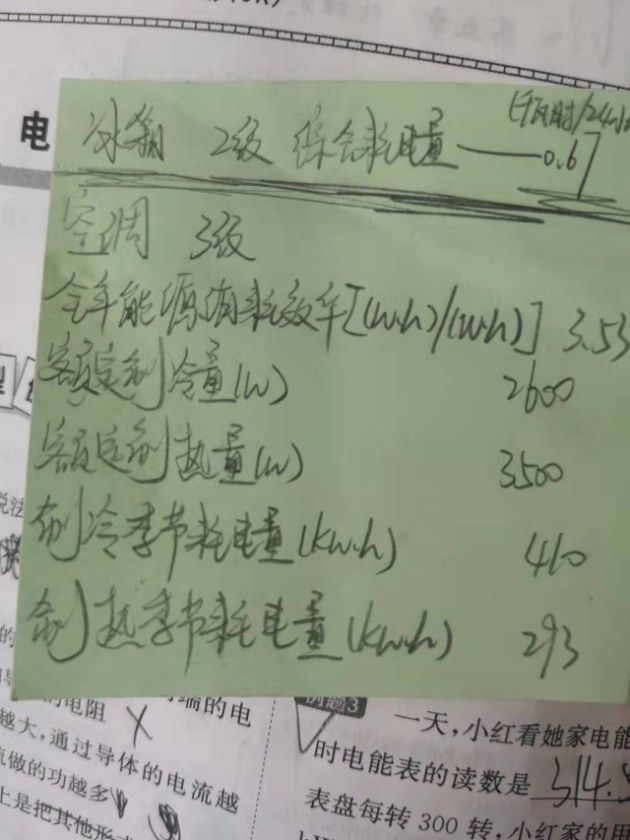 电
冰箱 2级 综合耗电量——0.67
空调 3级
全年能源消耗效率[(w.h)/(w.h)] 3.53
额定制冷量(w) 2600
额定制热量(w) 3500
制冷季节耗电量(kw.h) 410
制热季节耗电量(kw.h) 293
型
说法
的电阻
端的电
越大,通过导体的电流越
流做的功越多
上是把其他形
例题3
一天,小红看她家电能
时电能表的读数是 314.
表盘每转 300 转,小红家的用